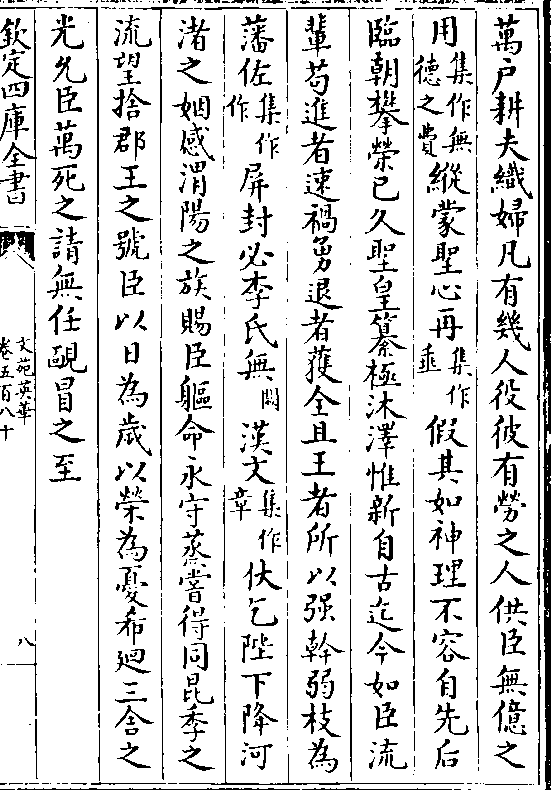 萬户耕夫織婦凡有幾人役彼有勞之人供臣無億之
用集作無德之費縱蒙聖心再集作垂假其如神理不容自先后
臨朝攀榮已久聖皇纂極沐澤惟新自古迄今如臣流
輩苟進者速禍勇退者獲全且王者所以强幹弱枝為
藩佐集作作屏封必李氏無闕漢文集作章伏乞陛下降河
渚之姻感渭陽之族賜臣軀命永守蒸嘗得同昆季之
流望捨郡王之號臣以日為歲以榮為憂希廻三舍之
光允臣萬死之請無任䩄冒之至
欽定四庫全書
文苑英華
卷五百八十
八